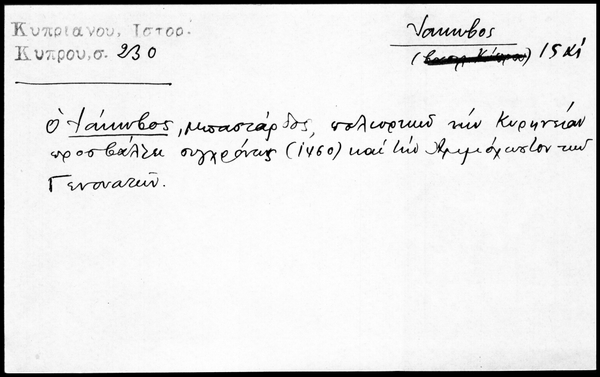 Κυπριανου, Ιστορ.
Κυπρου,σ. 230
Ιάκωβος
(βασιλ. Κύπρου) 15 Κ
ὁ Ιάκωβος, μπαστάρδος, πολιορκῶν τήν Κυρηνείαν
προσβάλλει συγχρόνως (1460) καί τήν Αμμόχωστον τῶν
Γενουατῶν.